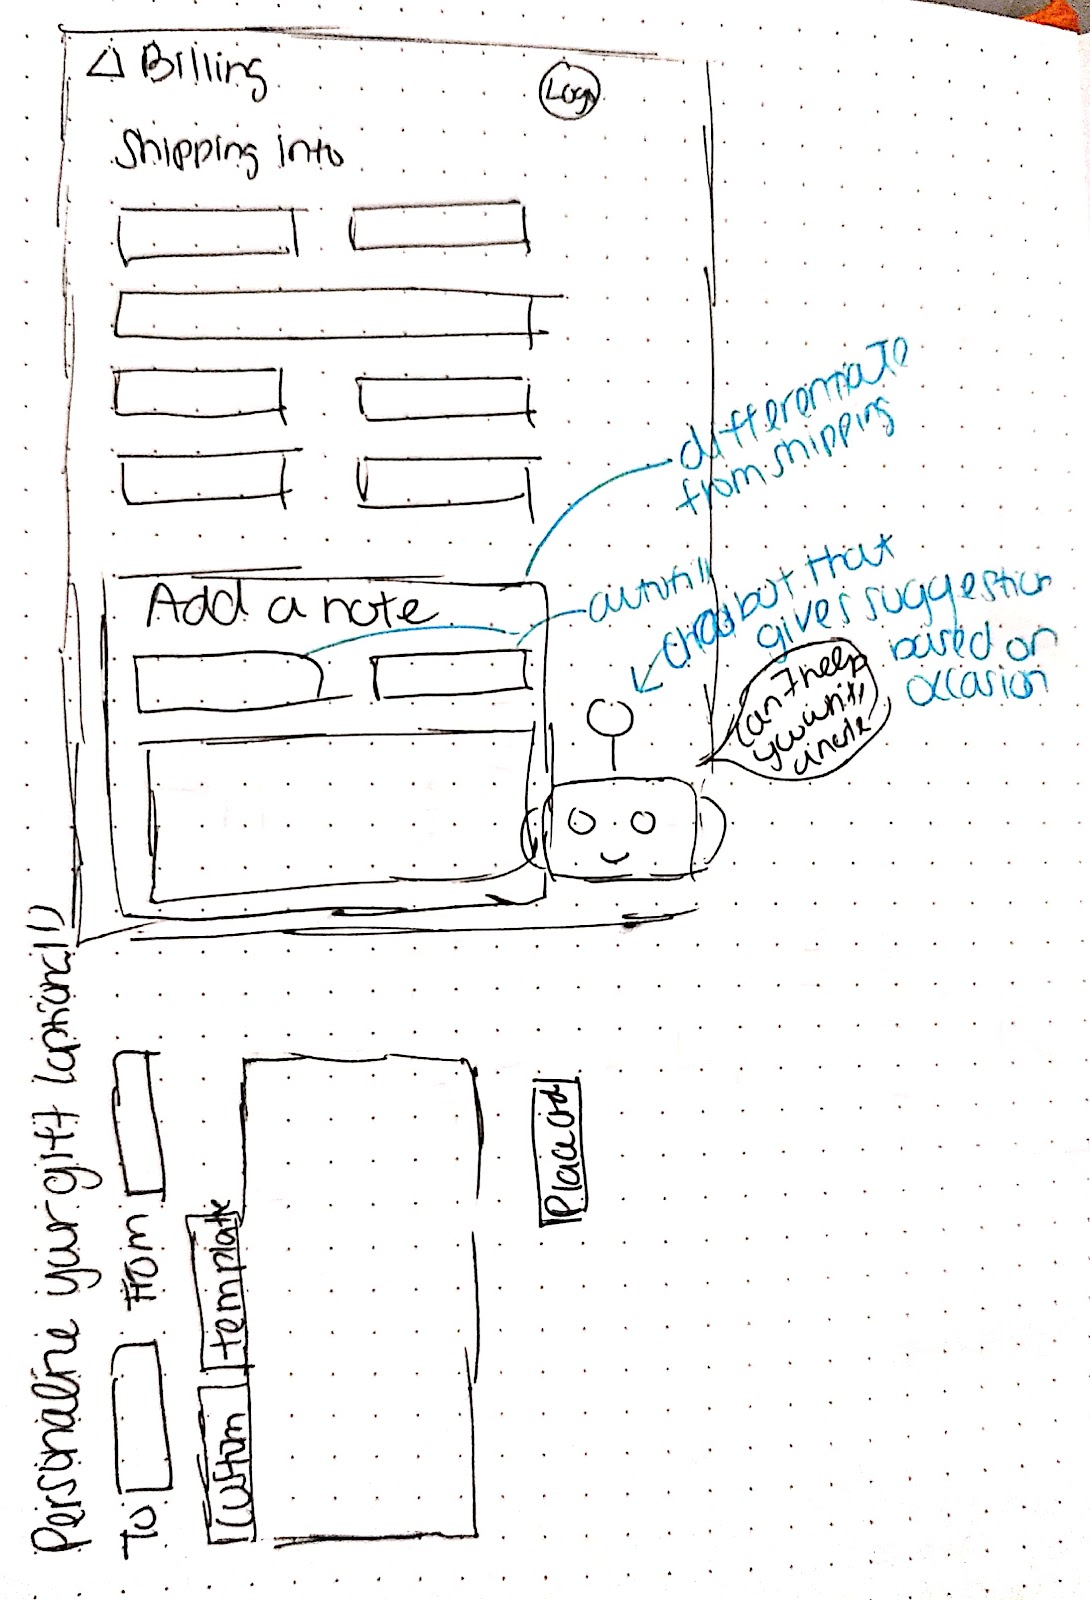 Billing
Logo
Shipping into
differentiate
from shipping
Add a note
autofill
chatbot that
gives suggestion
based on
occasion
Can I help
you write
a note
Personalize your gift (optional!)
To
From
Custom
template